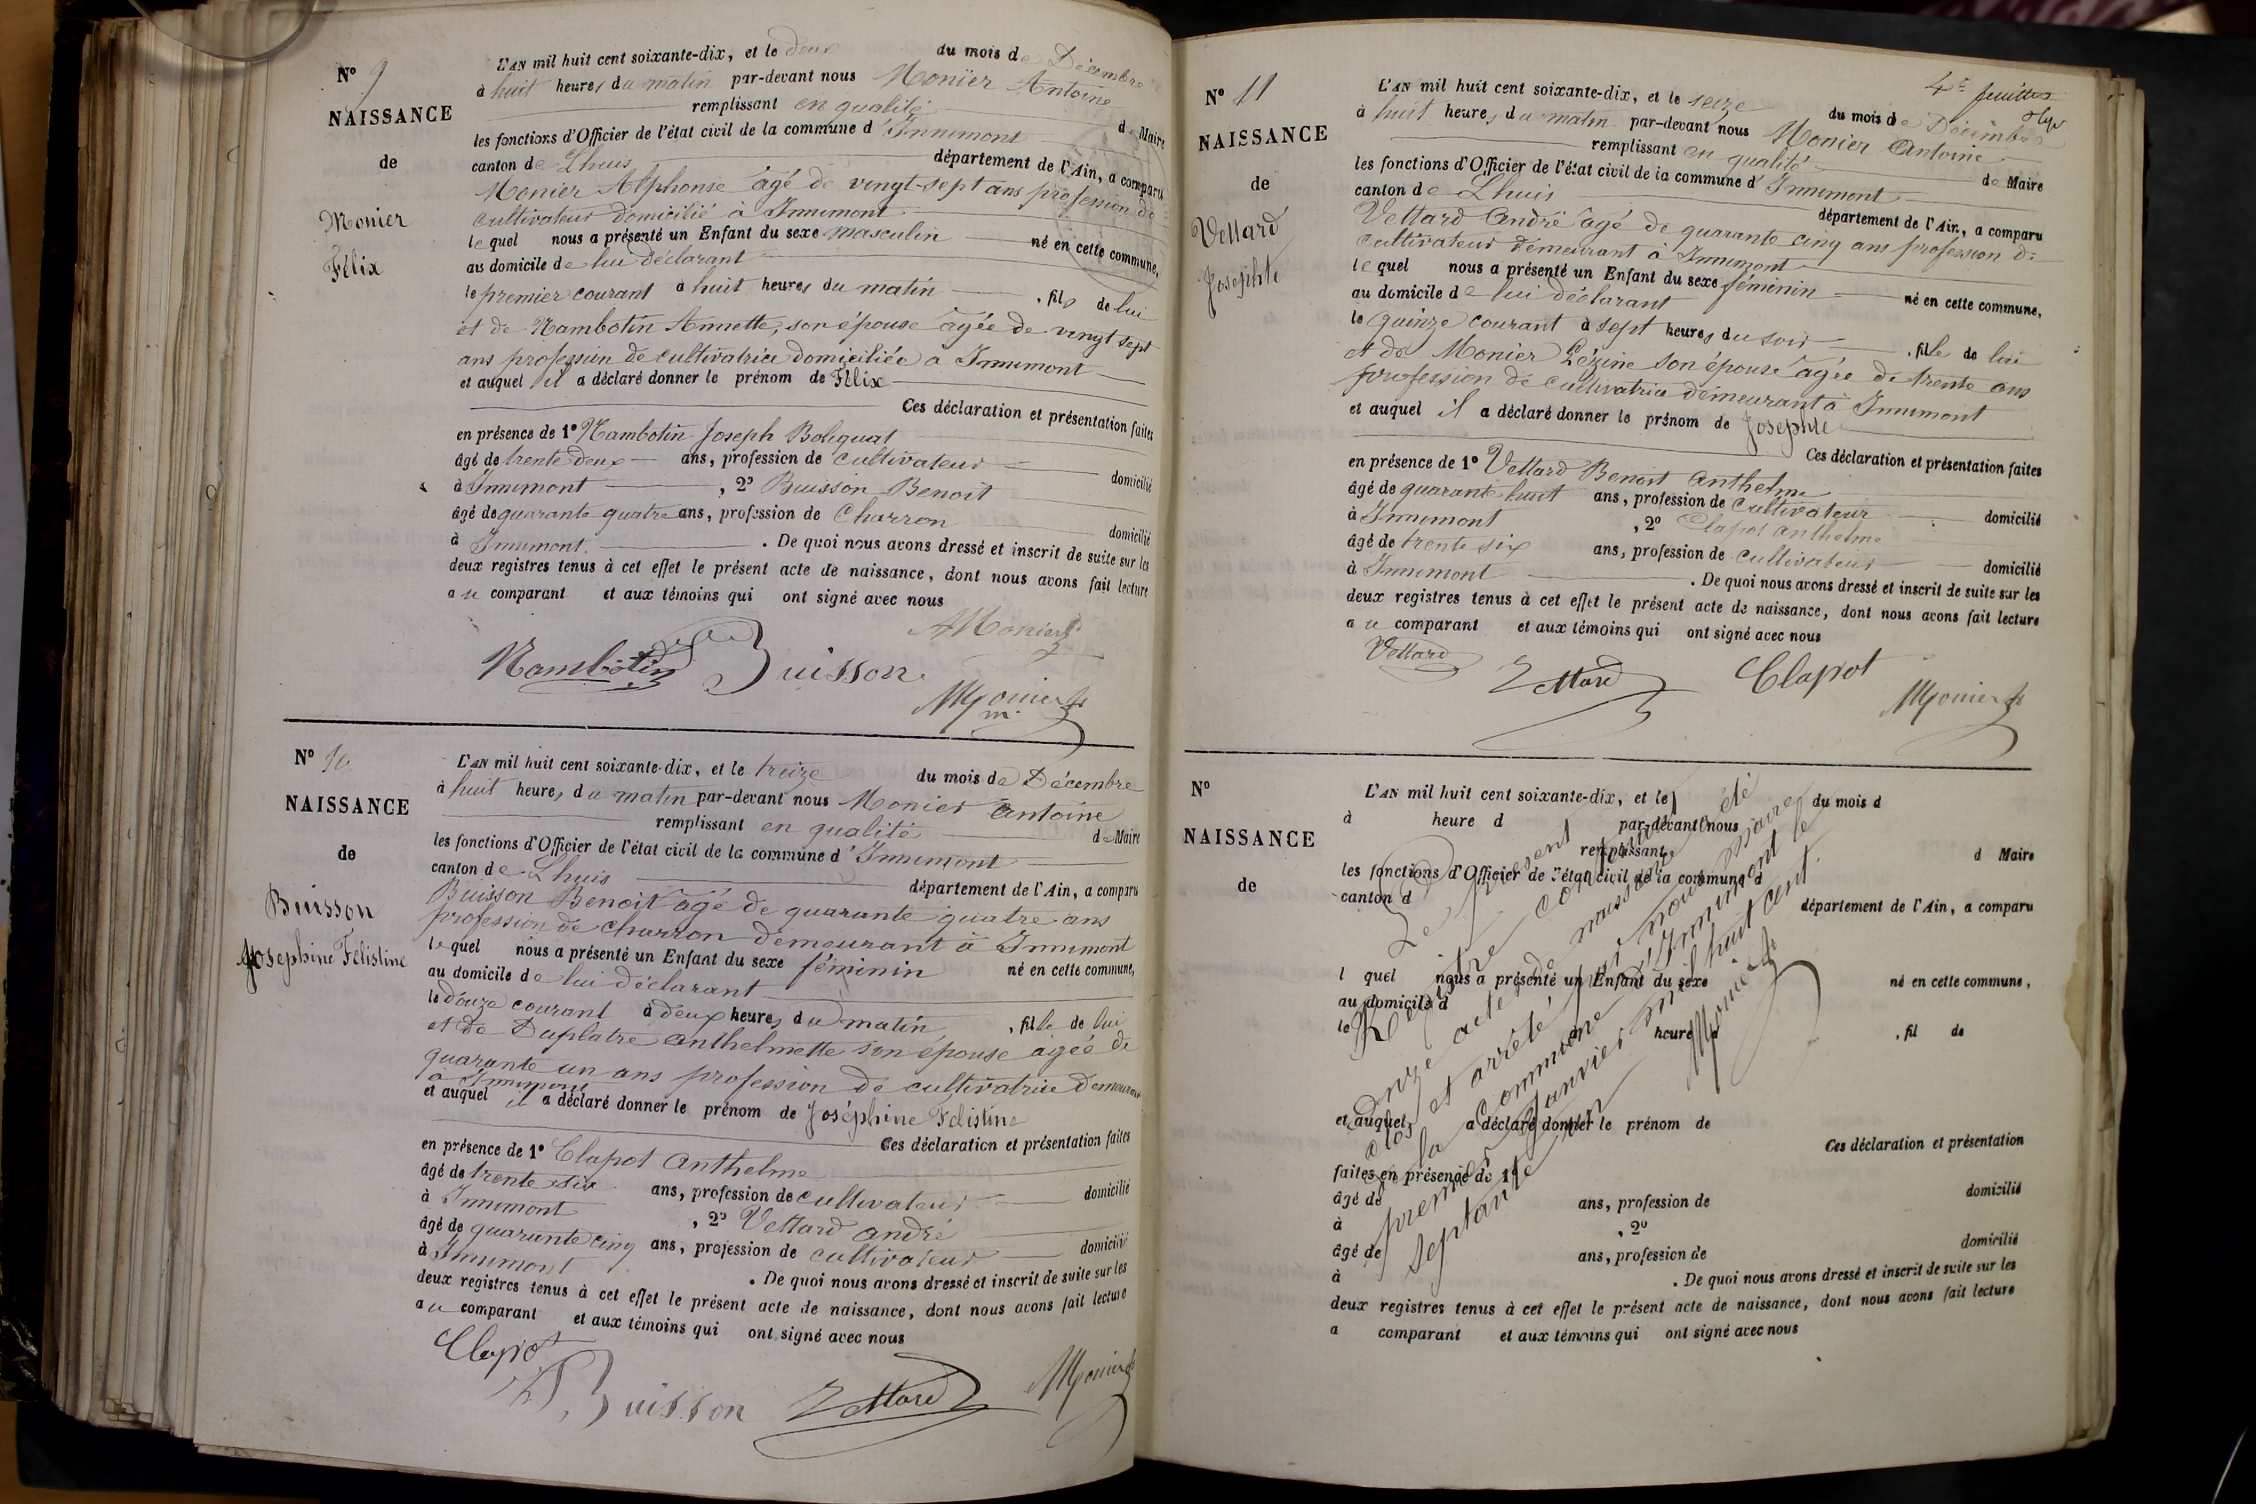 N° 9
NAISSANCE
de
Monier
Félix
L'AN mil huit cent soixante-dix, et le deux du mois de Décembre
à huit heures du matin par-devant nous Monier Antoine
remplissant en qualité de Maire
les fonctions d'Officier de l'état civil de la commune d'Innimont
canton de Lhuis département de l'Ain, a comparu
Monier Alphonse âgé de vingt-sept ans profession de
cultivateur domicilié à Innimont
lequel nous a présenté un Enfant du sexe masculin né en cette commune,
au domicile de lui déclarant
le premier courant à huit heures du matin, fils de lui
et de Nambotin Annette, son épouse âgée de vingt sept
ans profession de cultivatrice domiciliée à Innimont
et auquel il a déclaré donner le prénom de Félix
Ces déclaration et présentation faites
en présence de 1° Nambotin Joseph
âgé de trente deux ans, profession de cultivateur domicilié
à Innimont, 2° Buisson Benoit
âgé de quarante quatre ans, profession de Charron domicilié
à Innimont. De quoi nous avons dressé et inscrit de suite sur les
deux registres tenus à cet effet le présent acte de naissance, dont nous avons fait lecture
au comparant et aux témoins qui ont signé avec nous
AMonier
Nambotin Buisson
Monier
m.
N° 10
NAISSANCE
de
Buisson
Josephine Félistine
L'AN mil huit cent soixante-dix, et le treize du mois de Décembre
à huit heures du matin par-devant nous Monier Antoine
remplissant en qualité de Maire
les fonctions d'Officier de l'état civil de la commune d'Innimont
canton de Lhuis département de l'Ain, a comparu
Buisson Benoit âgé de quarante quatre ans
profession de charron demeurant à Innimont
lequel nous a présenté un Enfant du sexe féminin né en cette commune,
au domicile de lui déclarant
le douze courant à deux heures du matin, fille de lui
et de Duplatre Anthelmette son épouse âgée de
quarante un ans profession de cultivatrice demeurant
à Innimont
et auquel il a déclaré donner le prénom de Joséphine Félistine
Ces déclaration et présentation faites
en présence de 1° Clapot Anthelme
âgé de trente six ans, profession de cultivateur domicilié
à Innimont, 2° Vettard André
âgé de quarante cinq ans, profession de cultivateur domicilié
à Innimont. De quoi nous avons dressé et inscrit de suite sur les
deux registres tenus à cet effet le présent acte de naissance, dont nous avons fait lecture
au comparant et aux témoins qui ont signé avec nous
Clapot
Buisson Vettard Monier
4e feuillet
N° 11
NAISSANCE
de
Vettard
Josephte
L'AN mil huit cent soixante-dix, et le seize du mois de Décembre
à huit heures du matin par-devant nous Monier Antoine
remplissant en qualité de Maire
les fonctions d'Officier de l'état civil de la commune d'Innimont
canton de Lhuis département de l'Ain, a comparu
Vettard André âgé de quarante cinq ans profession de
cultivateur demeurant à Innimont
lequel nous a présenté un Enfant du sexe féminin né en cette commune,
au domicile de lui déclarant
le quinze courant à sept heures du soir, fille de lui
et de Monier Lézine son épouse âgée de trente ans
profession de cultivatrice demeurant à Innimont
et auquel il a déclaré donner le prénom de Josephte
Ces déclaration et présentation faites
en présence de 1° Vettard Benoit Anthelme
âgé de quarante huit ans, profession de cultivateur domicilié
à Innimont, 2° Clapot Anthelme
âgé de trente six ans, profession de cultivateur domicilié
à Innimont. De quoi nous avons dressé et inscrit de suite sur les
deux registres tenus à cet effet le présent acte de naissance, dont nous avons fait lecture
au comparant et aux témoins qui ont signé avec nous
Vettard
Vettard Clapot Monier
N°
NAISSANCE
de
L'AN mil huit cent soixante-dix, et le du mois d
à heure d par-devant nous
remplissant d Maire
les fonctions d'Officier de l'état civil de la commune d
canton d département de l'Ain, a comparu
l quel nous a présenté un Enfant du sexe né en cette commune,
au domicile d
le à heure d, fil de
et auquel a déclaré donner le prénom de
Ces déclaration et présentation
faites en présence de 1°
âgé de ans, profession de domicilié
à, 2°
âgé de ans, profession de domicilié
à. De quoi nous avons dressé et inscrit de suite sur les
deux registres tenus à cet effet le présent acte de naissance, dont nous avons fait lecture
a comparant et aux témoins qui ont signé avec nous
Le présent
Registre contenant
onze actes de naissance a été
clos et arrêté par nous maire
de la commune d'Innimont le
premier Janvier mil huit cent
septante un
Monier